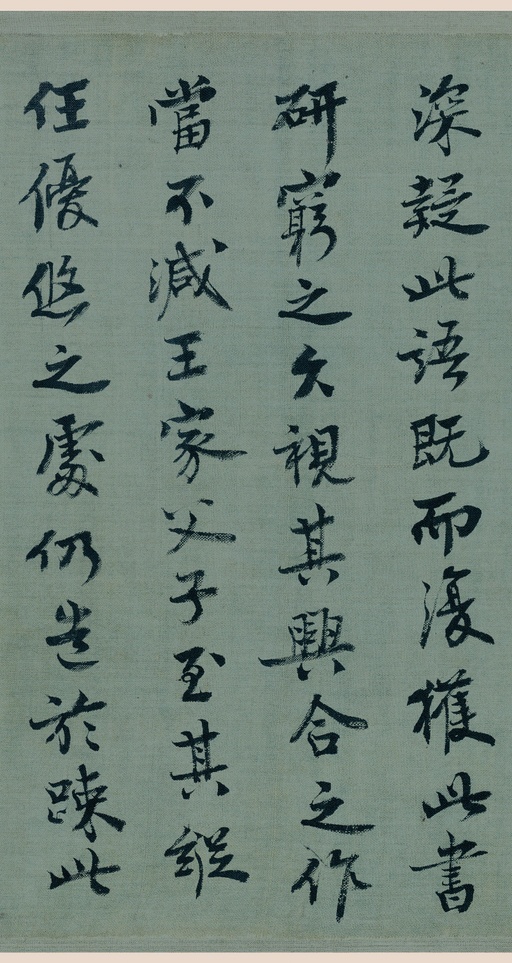 深疑此語既而復獲此書
研窮之久視其興合之作
當不減王家父子至其縱
任優悠之處仍造於疎此